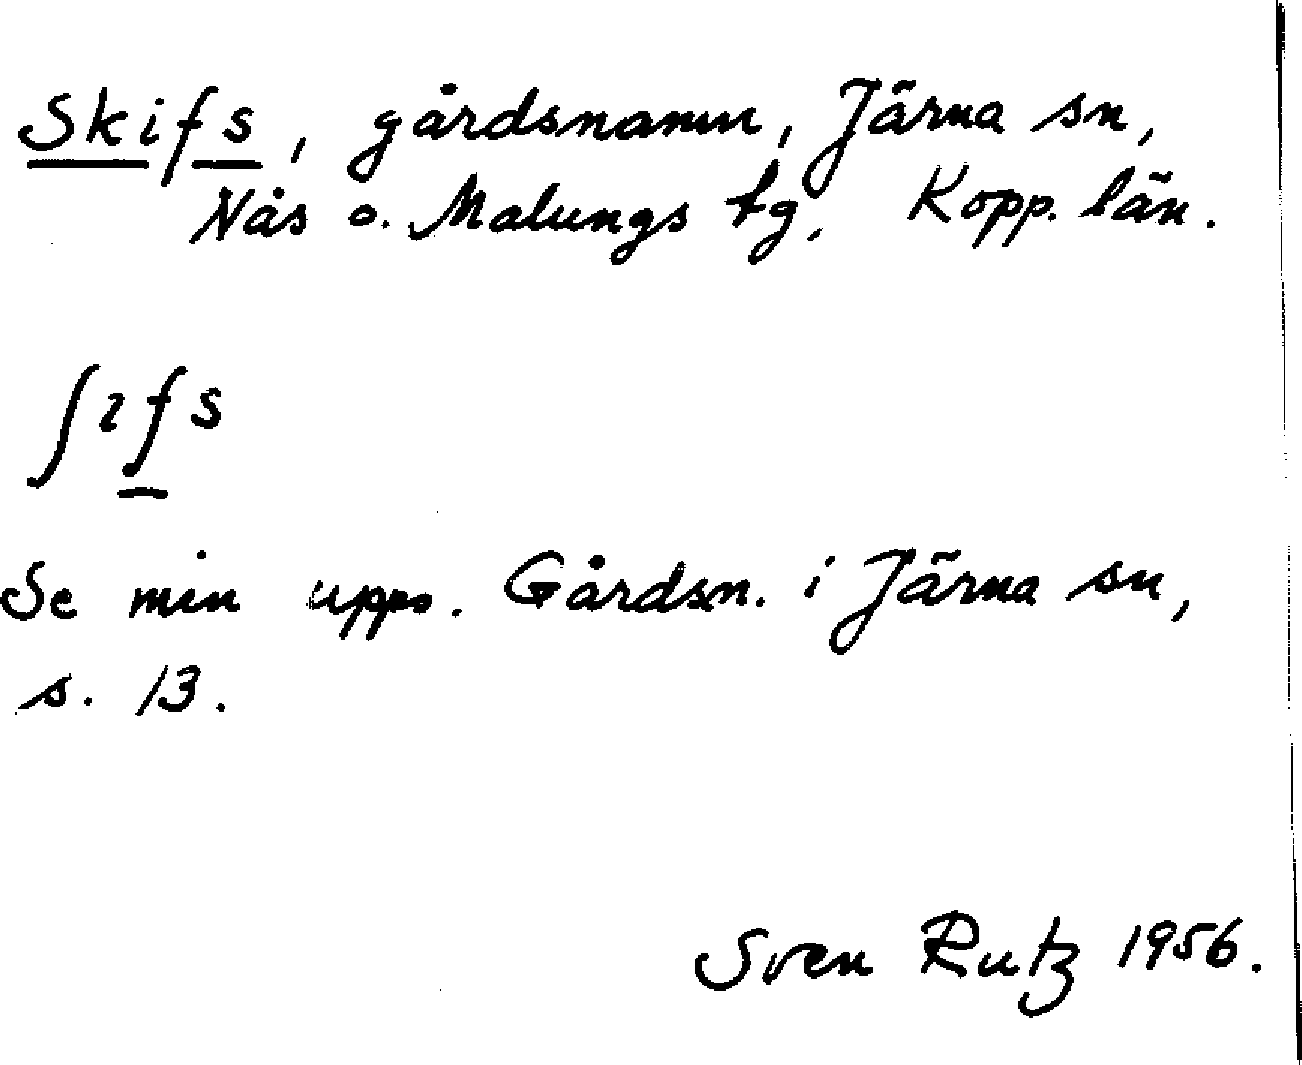 Skifs, gårdsnamn, Järna sn,
Nås o. Malungs tg. Kopp. län.
ʃıfs
Se min upps. Gårdsn. i Järna sn,
s. 13.
Sven Rutz 1956.